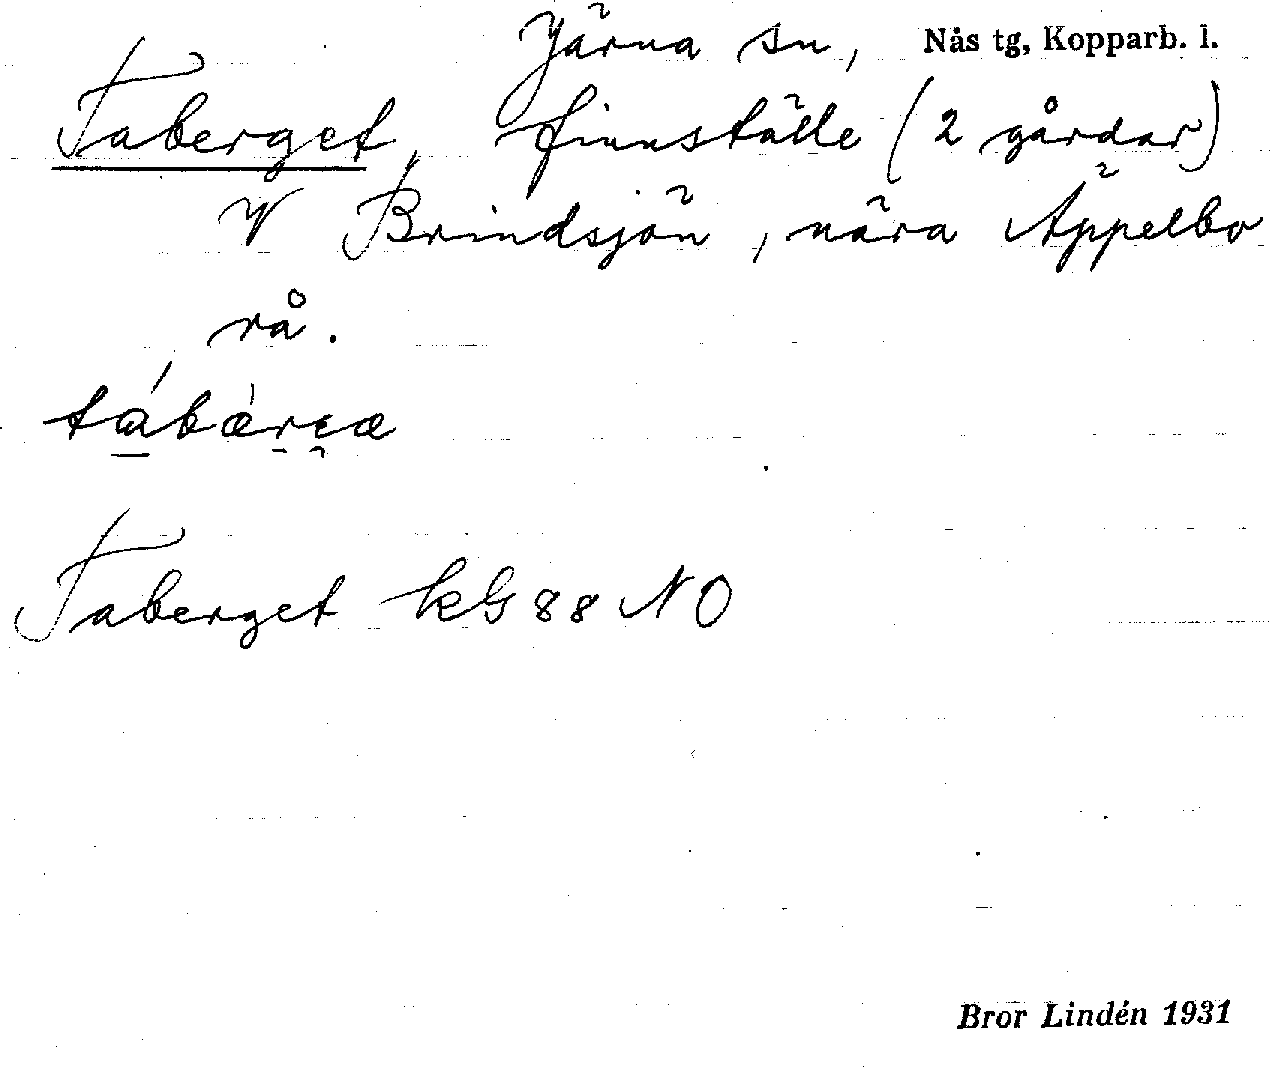 Järna sn, Nås tg, Kopparb. l.
Taberget, finnställe (2 gårdar)
V Brindsjön, nära Äppelbo
rå.
Taberget kG 88 NO
Bror Lindén 1931